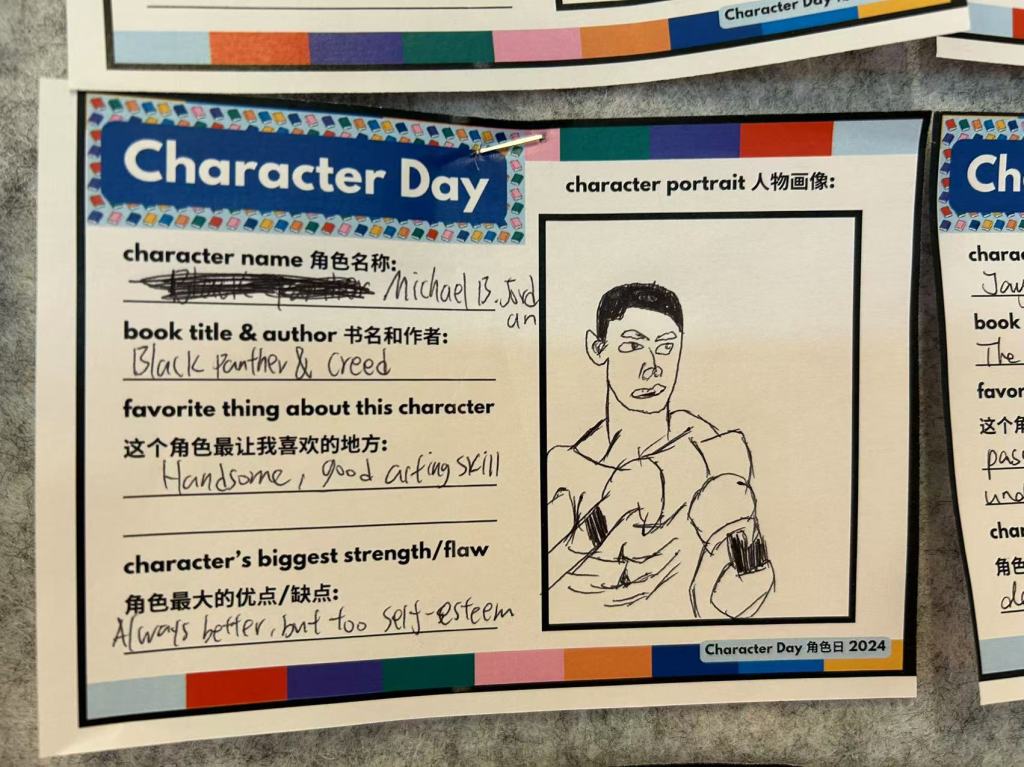 Character Day
Character Day
character name 角色名称:
Michael B. Jord
an
book title & author 书名和作者:
Black panther & creed
favorite thing about this character
这个角色最让我喜欢的地方:
Handsome, good acting skill
character's biggest strength/flaw
角色最大的优点/缺点:
Always better, but too self-esteem
character portrait 人物画像:
Character Day 角色日 2024
Ch
charac
Jay
book
The
favor
这个角
pas
und
char
角色
de